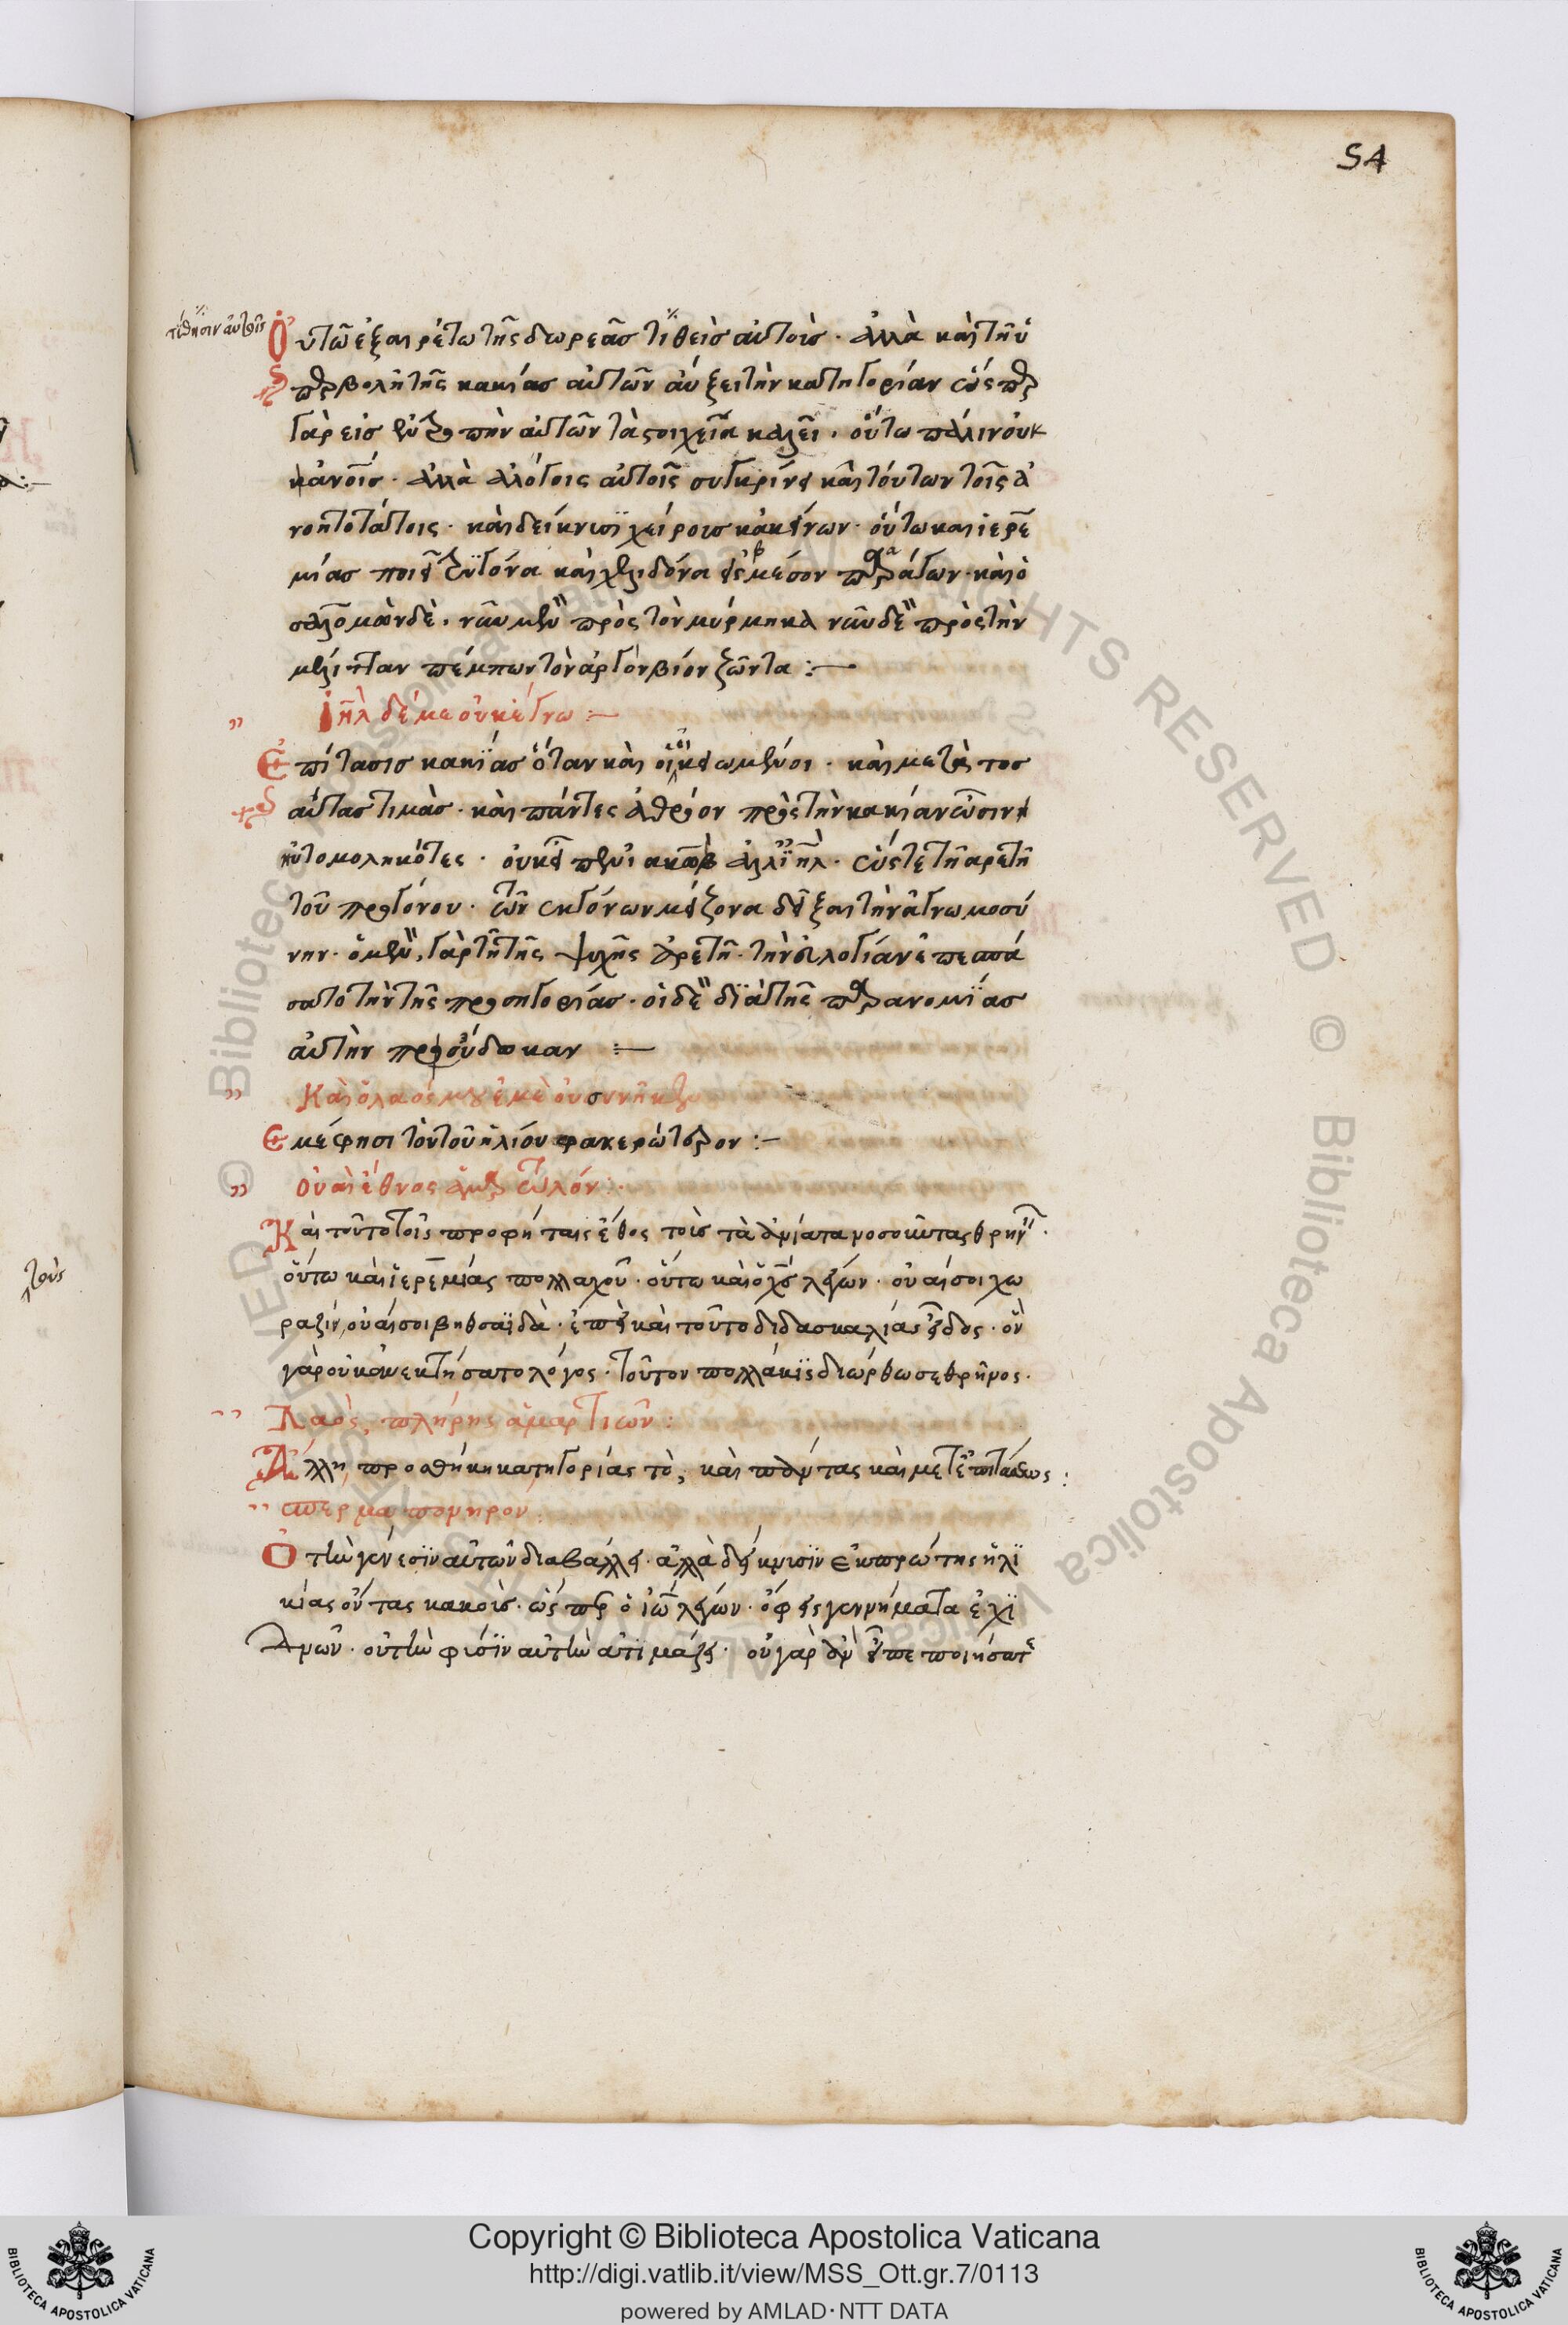 54
τίθησιν αὐτοῖς
Οὐ τῶ ἐξαιρέτω τῆς δωρεᾶσ τιθεὶσ αὐτοῖσ · ἀλλὰ καὶ τῆ ὑ
περβολῆ τῆς κακίασ αὐτῶν αὔξει τὴν κατηγορίαν ὥσπερ
γὰρ εἰσ ἐντροπὴν αὐτῶν τὰ στοιχεῖα καλεῖ · οὕτω πάλιν οὐκ
ἀν̅οισ · ἀλλὰ ἀλόγοις αὐτοῖς συγκρίνει καὶ τούτων τοῖς ἀ
νοητοτάτοις · καὶ δείκνυσϊ χείρουσ κακείνων · οὕτω καὶ ἱερε
μίασ ποιεῖ τρυγόνα καὶ χελιδόνα εἰς μέσον παράγων · καὶ ὁ
σολομὼν δὲ · νῦν μὲν πρὸς τὸν μύρμηκα νῦν δὲ πρὸς τὴν
μέλιτταν πέμπων τὸν ἀργὸν βίον ζῶντα :—
ἰη̅λ δέ με οὐκ ἔγνω :—
Ἐπίτασισ κακίασ ὅταν καὶ οἱ οἰκειωμένοι · καὶ μετὰ τοσ
αύτασ τιμὰσ · καὶ πάντες ἀθρόον πρὸς τὴν κακίαν ὦσιν
ηὐτομοληκότες · οὐκ εἶπεν ϊακὼβ ἀλλ' ϊη̅λ · ὥστε τῆ ἀρετῆ
τοῦ προγόνου · τῶν ἐκγόνων μείζονα δεῖξαι τὴν ἀγνωμοσύ
νην · ὁ μὲν γὰρ τῆ τῆς ψυχῆς ἀρετῆ · τὴν εὐλογίαν ἐπεσπά
σατο τὴν τῆς προσηγορίασ · οἱ δὲ διὰ τῆς παρανομίασ
αὐτὴν προύδωκαν :—
Καὶ ὁ λαόσ μου ἐμὲ οὐ συνῆκεν
Ἐμέ φησι τὸν τοῦ ἡλίου φανερώτερον :—
οὐαὶ ἔθνος ἁμαρτωλόν :·
Καὶ τοῦτο τοῖς προφήταις ἔθος τοῖσ τὰ ἀνίατα νοσοῦντας θρηνεῖν ·
οὕτω καὶ ἱερεμίας πολλαχοῦ · οὕτω καὶ ὁ χ̅ς λέγων · οὐαί σοι χω
ραζίν, οὐαί σοι βηθσαϊδὰ · ἐπεὶ καὶ τοῦτο διδασκαλίας εἶδος · ὃν
γὰρ οὐκ ἀνεκτήσατο λόγος · τοῦτον πολλάκις διώρθωσε θρῆνος ·
Λαὸς πλήρης ἁμαρτιῶν :
Ἄλλη προσθήκη κατηγορίας τὸ, καὶ πάντας καὶ μετ' ἐπιτάσεως :
σπέρμα πονηρόν :
Οὐ τὴν γένεσϊν αὐτῶν διαβάλλει · ἀλλὰ δείκνυσϊν ἐκ πρώτης ἡλϊ
κίας ὄντας κακοὺσ · ὥσπερ ὁ ἰω̅ λέγων · ὄφεις γεννήματα ἐχϊ
δνῶν · οὐ τὴν φύσϊν αὐτὴν ἀτιμάζει · οὐ γὰρ ἂν εἶπε ποιήσατε
τοὺς
Copyright © Biblioteca Apostolica Vaticana
http://digi.vatlib.it/view/MSS_Ott.gr.7/0113
powered by AMLAD·NTT DATA